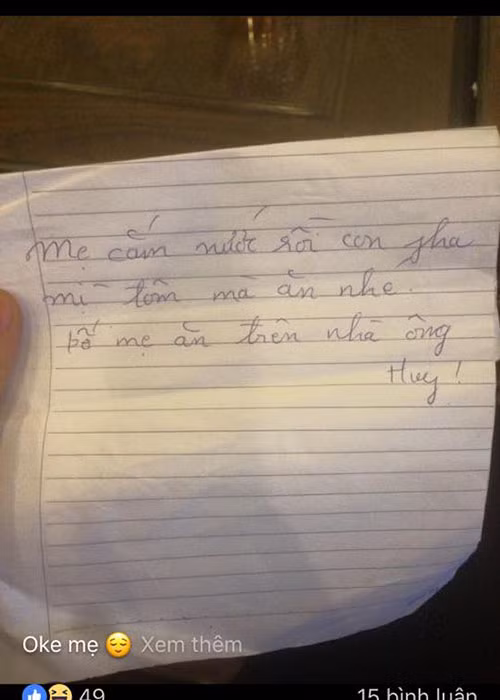 Mẹ cắm nước rồi con pha
mì tôm mà ăn nhé.
bố mẹ ăn trên nhà ông
Huy!
Oke mẹ 😌 Xem thêm
49 15 bình luận